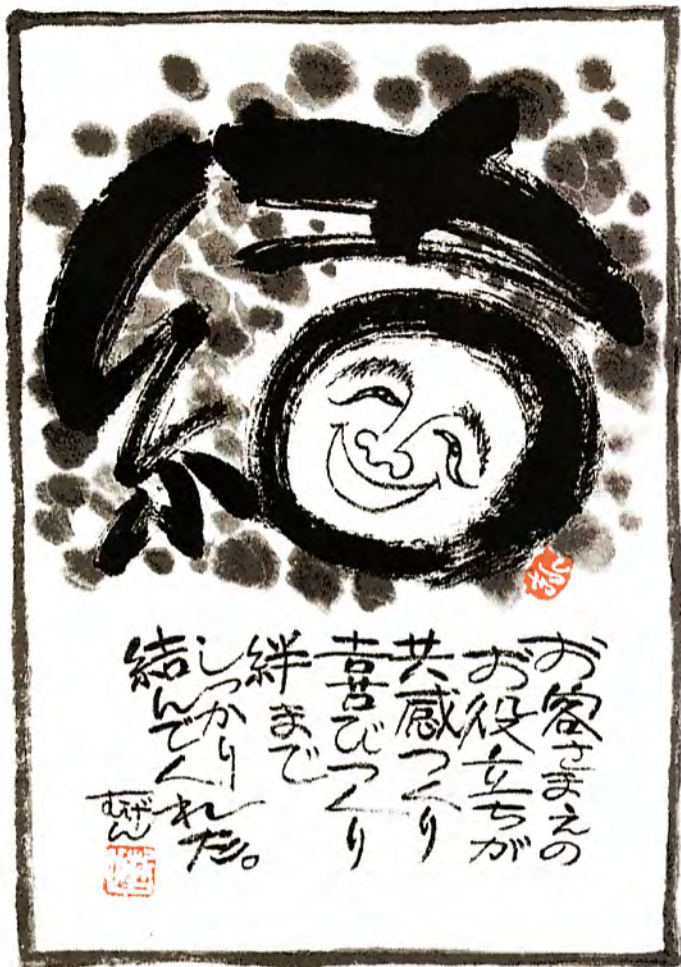 結
お客さまえの
お役立ちが
共感つくり
喜びつくり
絆まで
しっかり
結んでくれた。
むげん